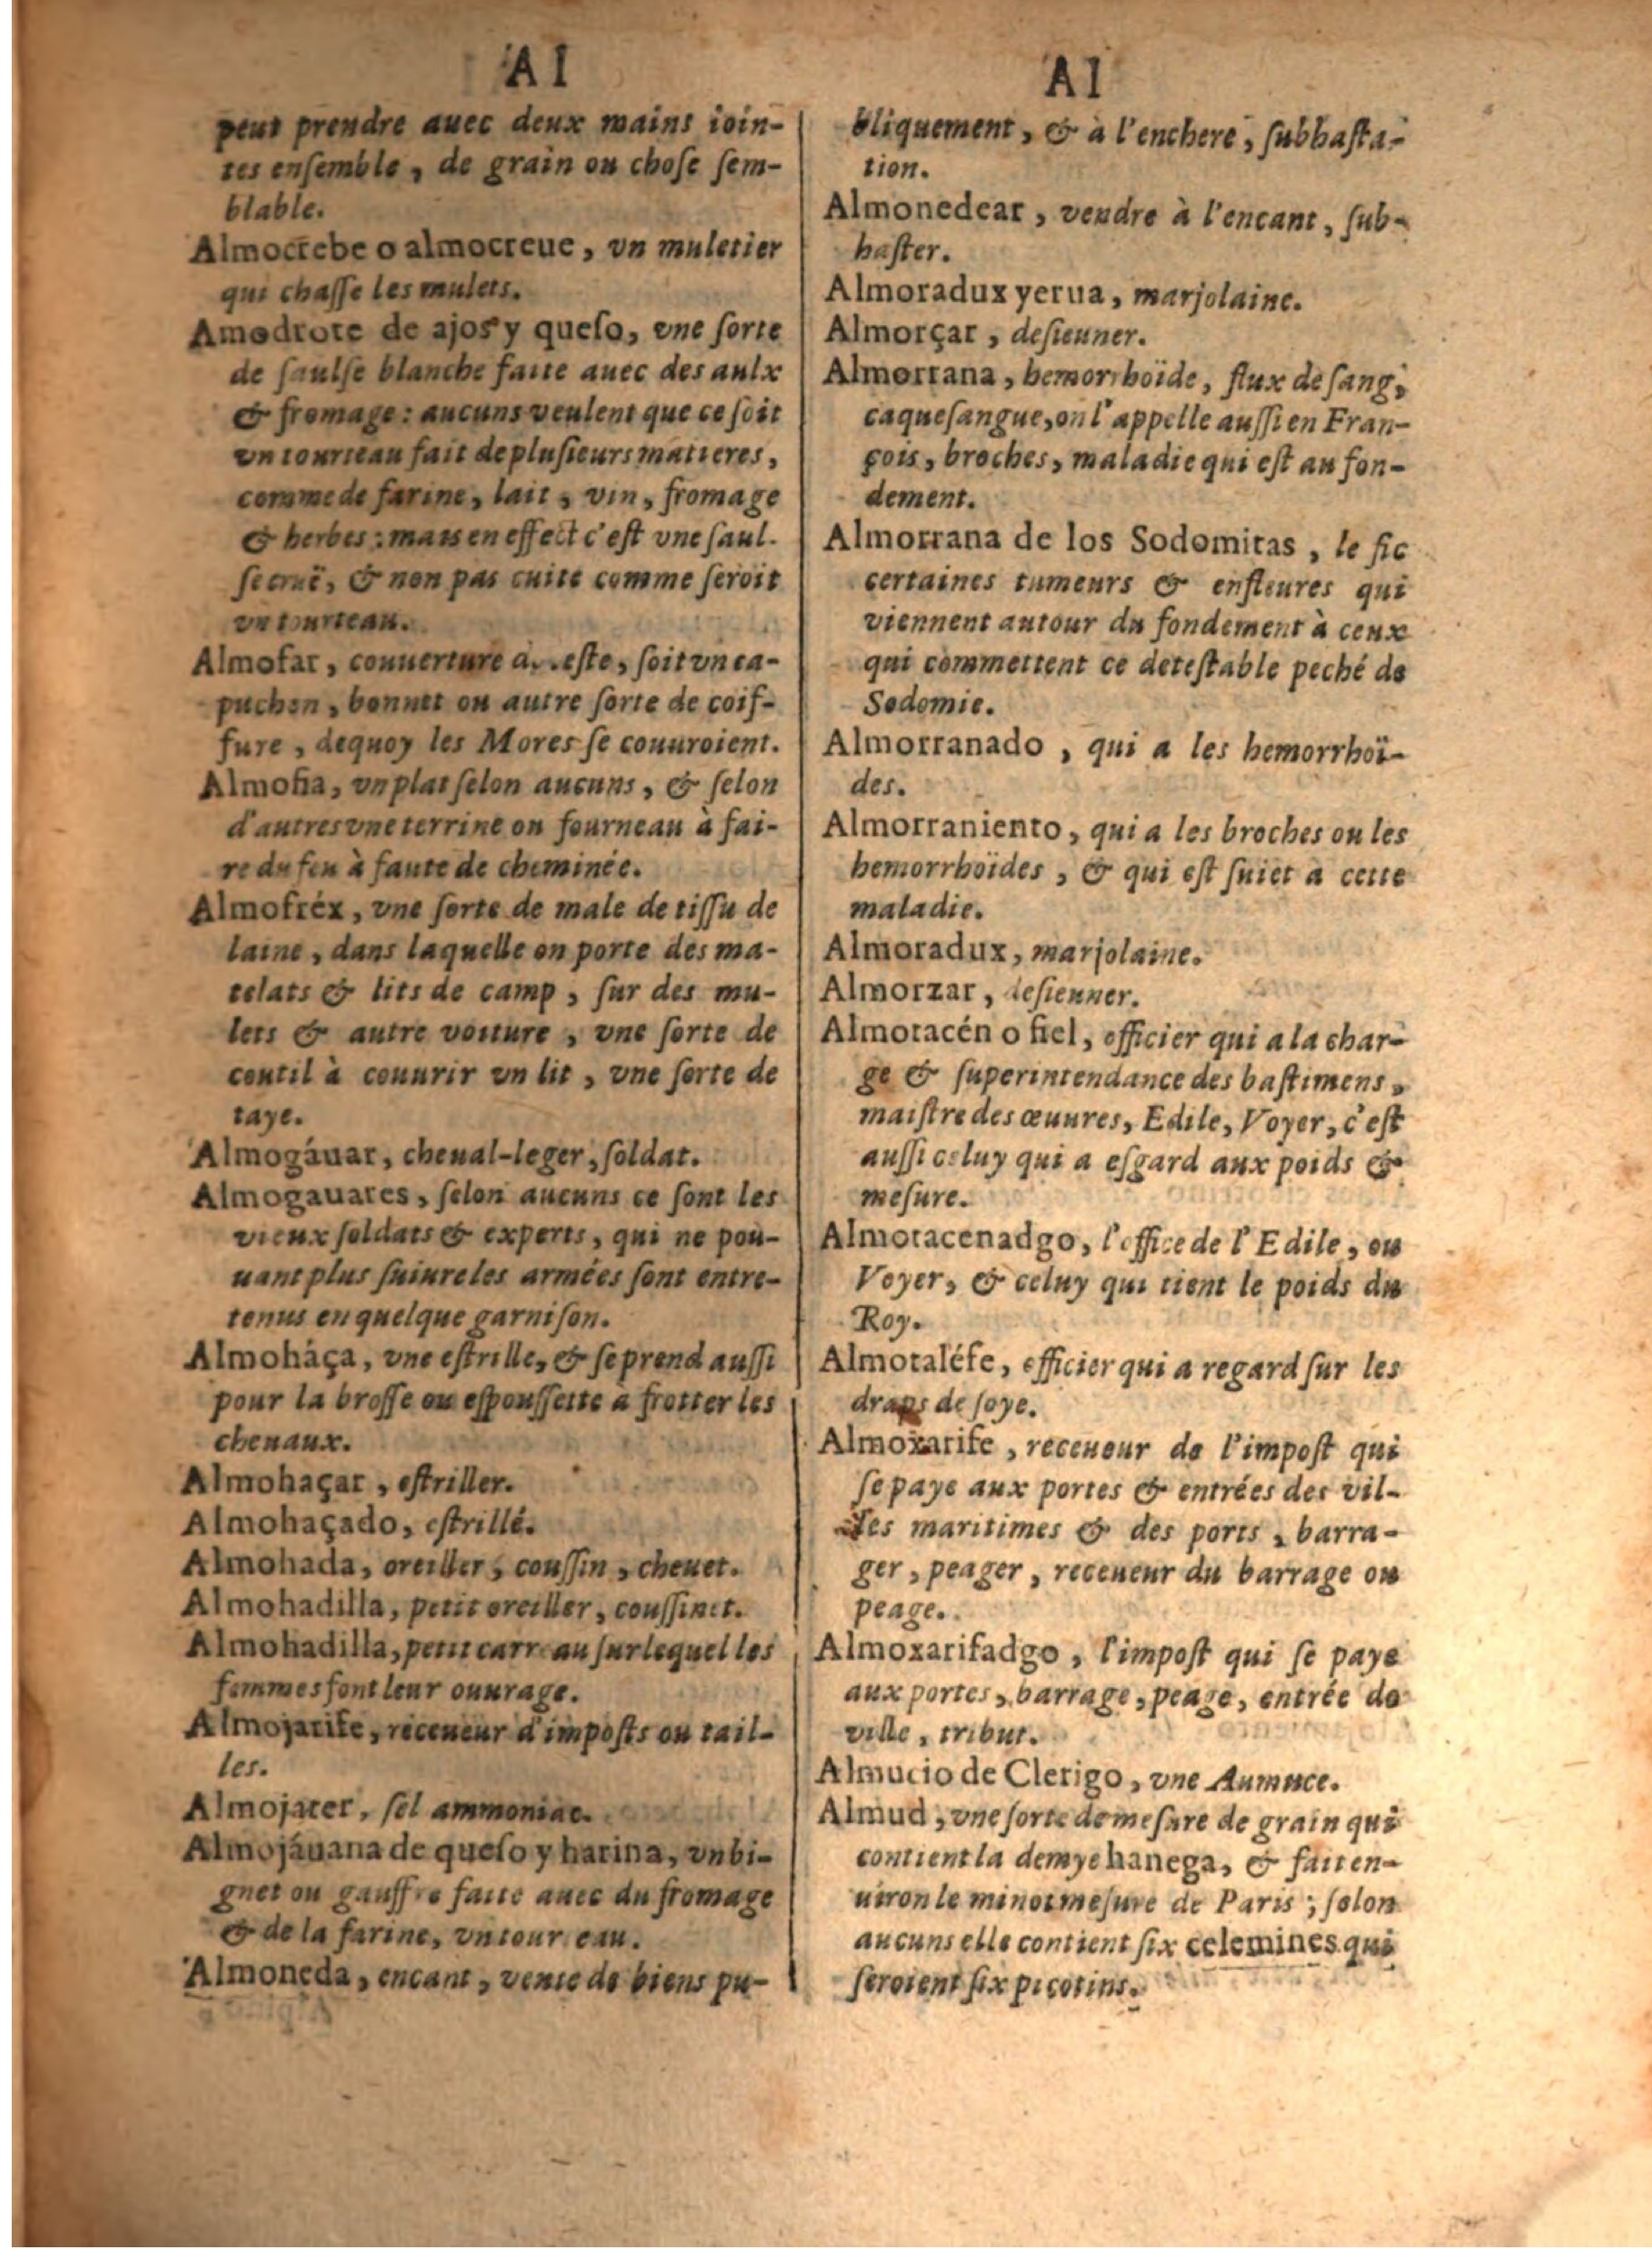 AI
peut prendre auec deux mains ioin-
tes enſemble, de grain ou choſe ſem-
blable.
Almocrebe o almocreue, vn muletier
qui chaſſe les mulets.
Amodrote de ajos y queſo, vne ſorte
de ſaulſe blanche faite auec des aulx
& fromage: aucuns veulent que ce ſoit
vn tourteau fait de pluſieurs matieres,
comme de farine, lait, vin, fromage
& herbes: mais en effect c'eſt vne ſaul-
ſe cruë, & non pas cuite comme ſeroit
vn tourteau.
Almofar, couuerture eſte, ſoit vn ca-
puchon, bonnet ou autre ſorte de coif-
fure, dequoy les Mores ſe couuroient.
Almofia, vn plat ſelon aucuns, & ſelon
d'autres vne terrine ou fourneau à fai-
re du feu à faute de cheminée.
Almofréx, vne ſorte de male de tiſſu de
laine, dans laquelle on porte des ma-
telats & lits de camp, ſur des mu-
lets & autre voiture, vne ſorte de
coutil à couurir vn lit, vne ſorte de
taye.
Almogáuar, cheual-leger, ſoldat.
Almogauares, ſelon aucuns ce ſont les
vieux ſoldats & experts, qui ne pou-
uant plus ſuiure les armées ſont entre-
tenus en quelque garniſon.
Almoháça, vne eſtrille, & ſe prend auſſi
pour la broſſe ou eſpouſſette a frotter les
cheuaux.
Almohaçar, eſtriller.
Almohaçado, eſtrillé.
Almohada, oreiller, couſſin, cheuet.
Almohadilla, petit oreiller, couſſinet.
Almohadilla, petit carreau ſur lequel les
femmes font leur ouurage.
Almojarife, receueur d'impoſts ou tail-
les.
Almojater, ſel ammoniac.
Almojáuana de queſo y harina, vn bi-
gnet ou gauffre faite auec du fromage
& de la farine, vn tour eau.
Almoneda, encant, vente de biens pu-
AI
bliquement, & à l'enchere, ſubhaſta-
tion.
Almonedear, vendre à l'encant, ſub-
haſter.
Almoradux yerua, marjolaine.
Almorçar, deſieuner.
Almorrana, hemorrhoïde, flux de ſang,
caqueſangue, on l'appelle auſſi en Fran-
çois, broches, maladie qui eſt au fon-
dement.
Almorrana de los Sodomitas, le fic
certaines tumeurs & enfleures qui
viennent autour du fondement à ceux
qui commettent ce deteſtable peché de
Sodomie.
Almorranado, qui a les hemorrhoï-
des.
Almorraniento, qui a les broches ou les
hemorrhoïdes, & qui eſt ſuiet a cette
maladie.
Almoradux, marjolaine.
Almorzar, deſieuner.
Almotacén o fiel, officier qui a la char-
ge & ſuperintendance des baſtimens,
maiſtre des œuures, Edile, Voyer, c'eſt
auſſi celuy qui a eſgard aux poids &
meſure.
Almotacenadgo, l'office de l'Edile, ou
Voyer, & celuy qui tient le poids du
Roy.
Almotaléfe, officier qui a regard ſur les
draps de ſoye.
Almoxarife, receueur de l'impoſt qui
ſe paye aux portes & entrées des vil-
les maritimes & des ports, barra-
ger, peager, receueur du barrage ou
peage.
Almoxarifadgo, l'impoſt qui ſe paye
aux portes, barrage, peage, entrée de
ville, tribut.
Almucio de Clerigo, vne Aumuce.
Almud, vne ſorte de meſure de grain qui
contient la demye hanega, & fait en-
uiron le minot meſure de Paris; ſelon
aucuns elle contient ſix celemines qui
ſeroient ſix picotins.